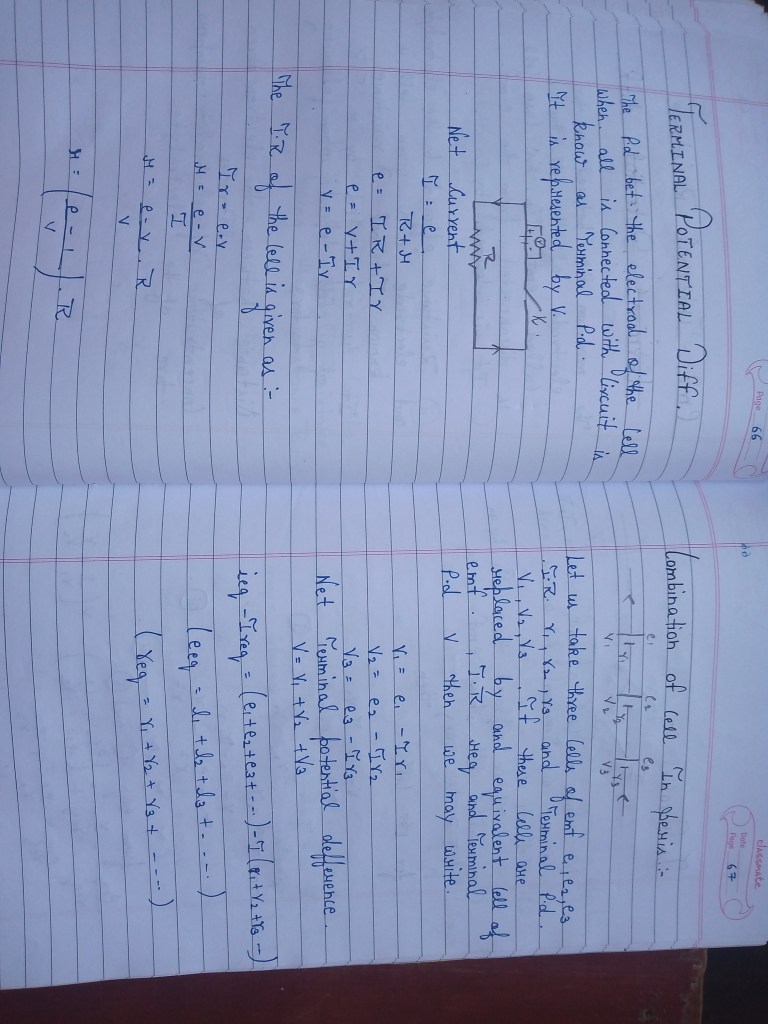 Page 66
TERMINAL POTENTIAL Diff.
The P.d bet. the electrod of the Cell
when all is Connected with Circuit is
know as Terminal P.d.
It is represented by V.
K
R
Net Current
I = e
R+r
e = IR + Ir
e = v + Ir
v = e - Ir
The I.R of the Cell is given as :-
Ir = e-v
r = e-v
I
r = e-v . R
v
r = (e - 1) . R
v
classmate
Date
Page 67
Combination of Cell In Seris :-
e1 e2 e3
r1 r2 r3
V1 V2 V3
Let us take three Cells of emf e1, e2, e3
I.R. r1, r2, r3 and Terminal P.d.
V1, V2, V3 . If these Cell are
replaced by and equivalent Cell of
emf . , I.R req and Terminal
P.d V then we may write.
V1 = e1 - Ir1
V2 = e2 - Ir2
V3 = e3 - Ir3
Net Terminal potential defference.
V = V1 + V2 + V3
ieq - Ireq = (e1+e2+e3+...) - I(r1+r2+r3-)
(eeq = e1 + e2 + e3 + - - - -)
(req = r1 + r2 + r3 + - - - -)